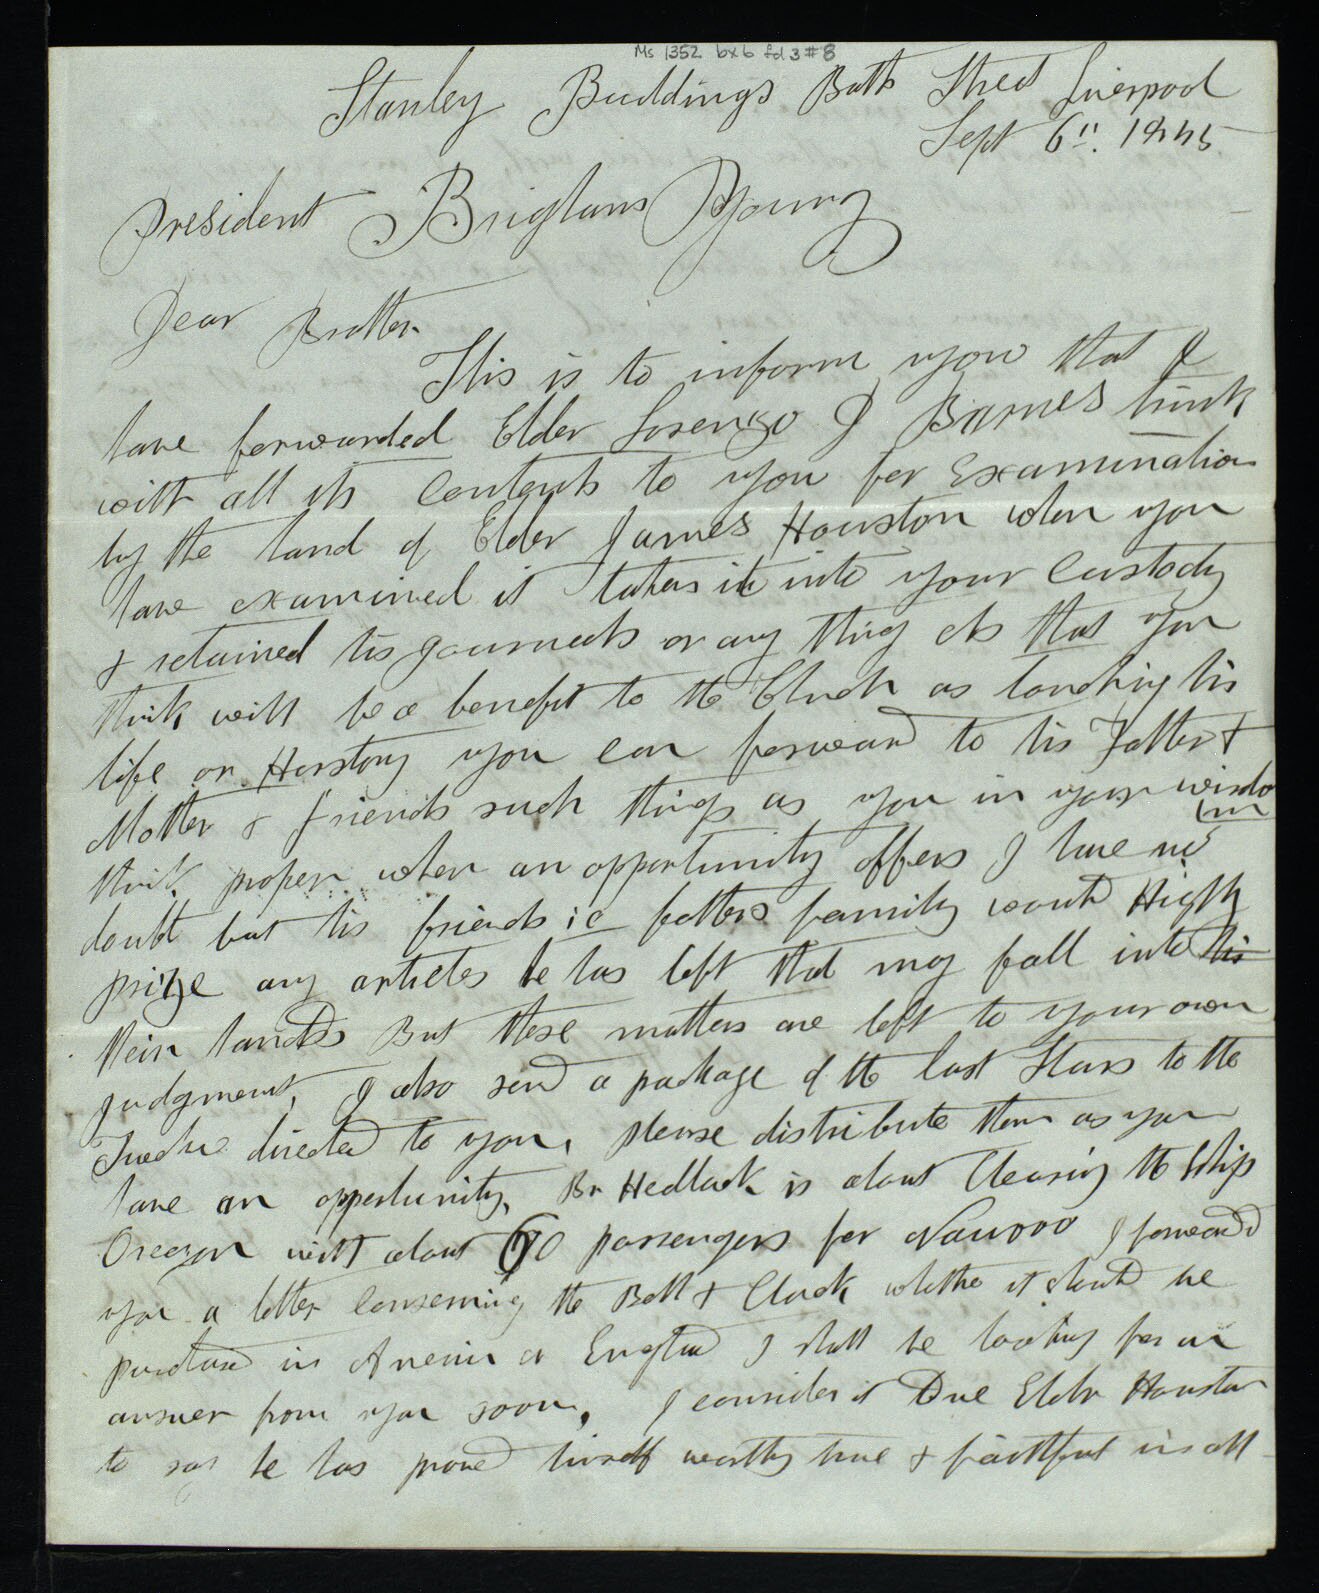 Ms 1352 bx 6 fd 3 #8
Stanley Buildings Bath Street Liverpool
Sept 6th. 1845
President Brigham Young
Dear Brother
This is to inform you that I
have forwarded Elder Lorenzo D Barnes trunk
with all its contents to you for Examination
by the hand of Elder James Houston when you
have examined it taken it into your custody
& retained his journals or any thing els that you
think will be a benefit to the Church as touching his
life or Hisstory you can forward to his Father &
Mother & friends such things as you in your wisdo
m
think proper when an opportunity offers I have no
doubt but his friends ie fathers family would Highly
prize any articles he has left that may fall into his
their hands But these matters are left to your own
judgment, I also send a package of the last Stars to the
Twelve directed to you, please distribute them as you
have an opportunity, Br Hedlock is about Clearing the Ship
Oregon with about 60 passengers for Nauvoo I forward
you a letter conserning the Bell & Clock whether it should be
purchased in America or England I shall be looking for an
answer from you soon, I consider it Due Elder Houston
to say he has proved himself worthy true & faithful in all